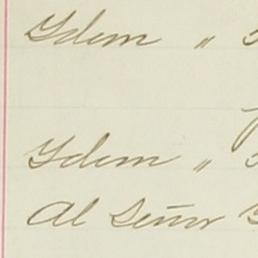 Idem "
Idem "
Al Señor